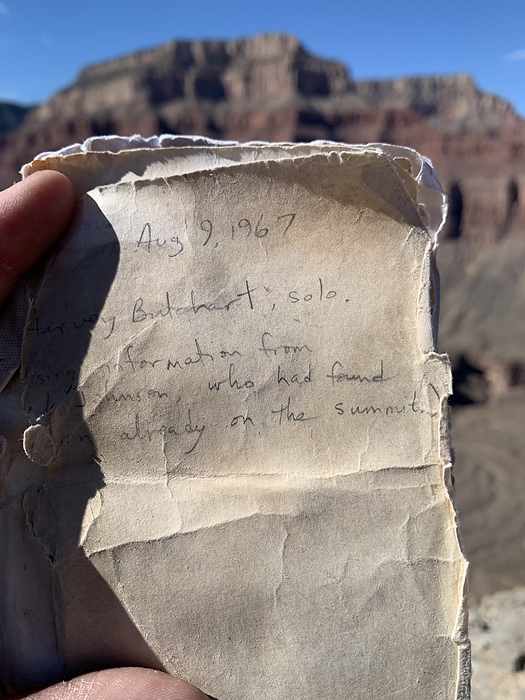 Aug 9, 1967
Harvey Butchart, solo.
information from
Johnson, who had found
already on the summit.)